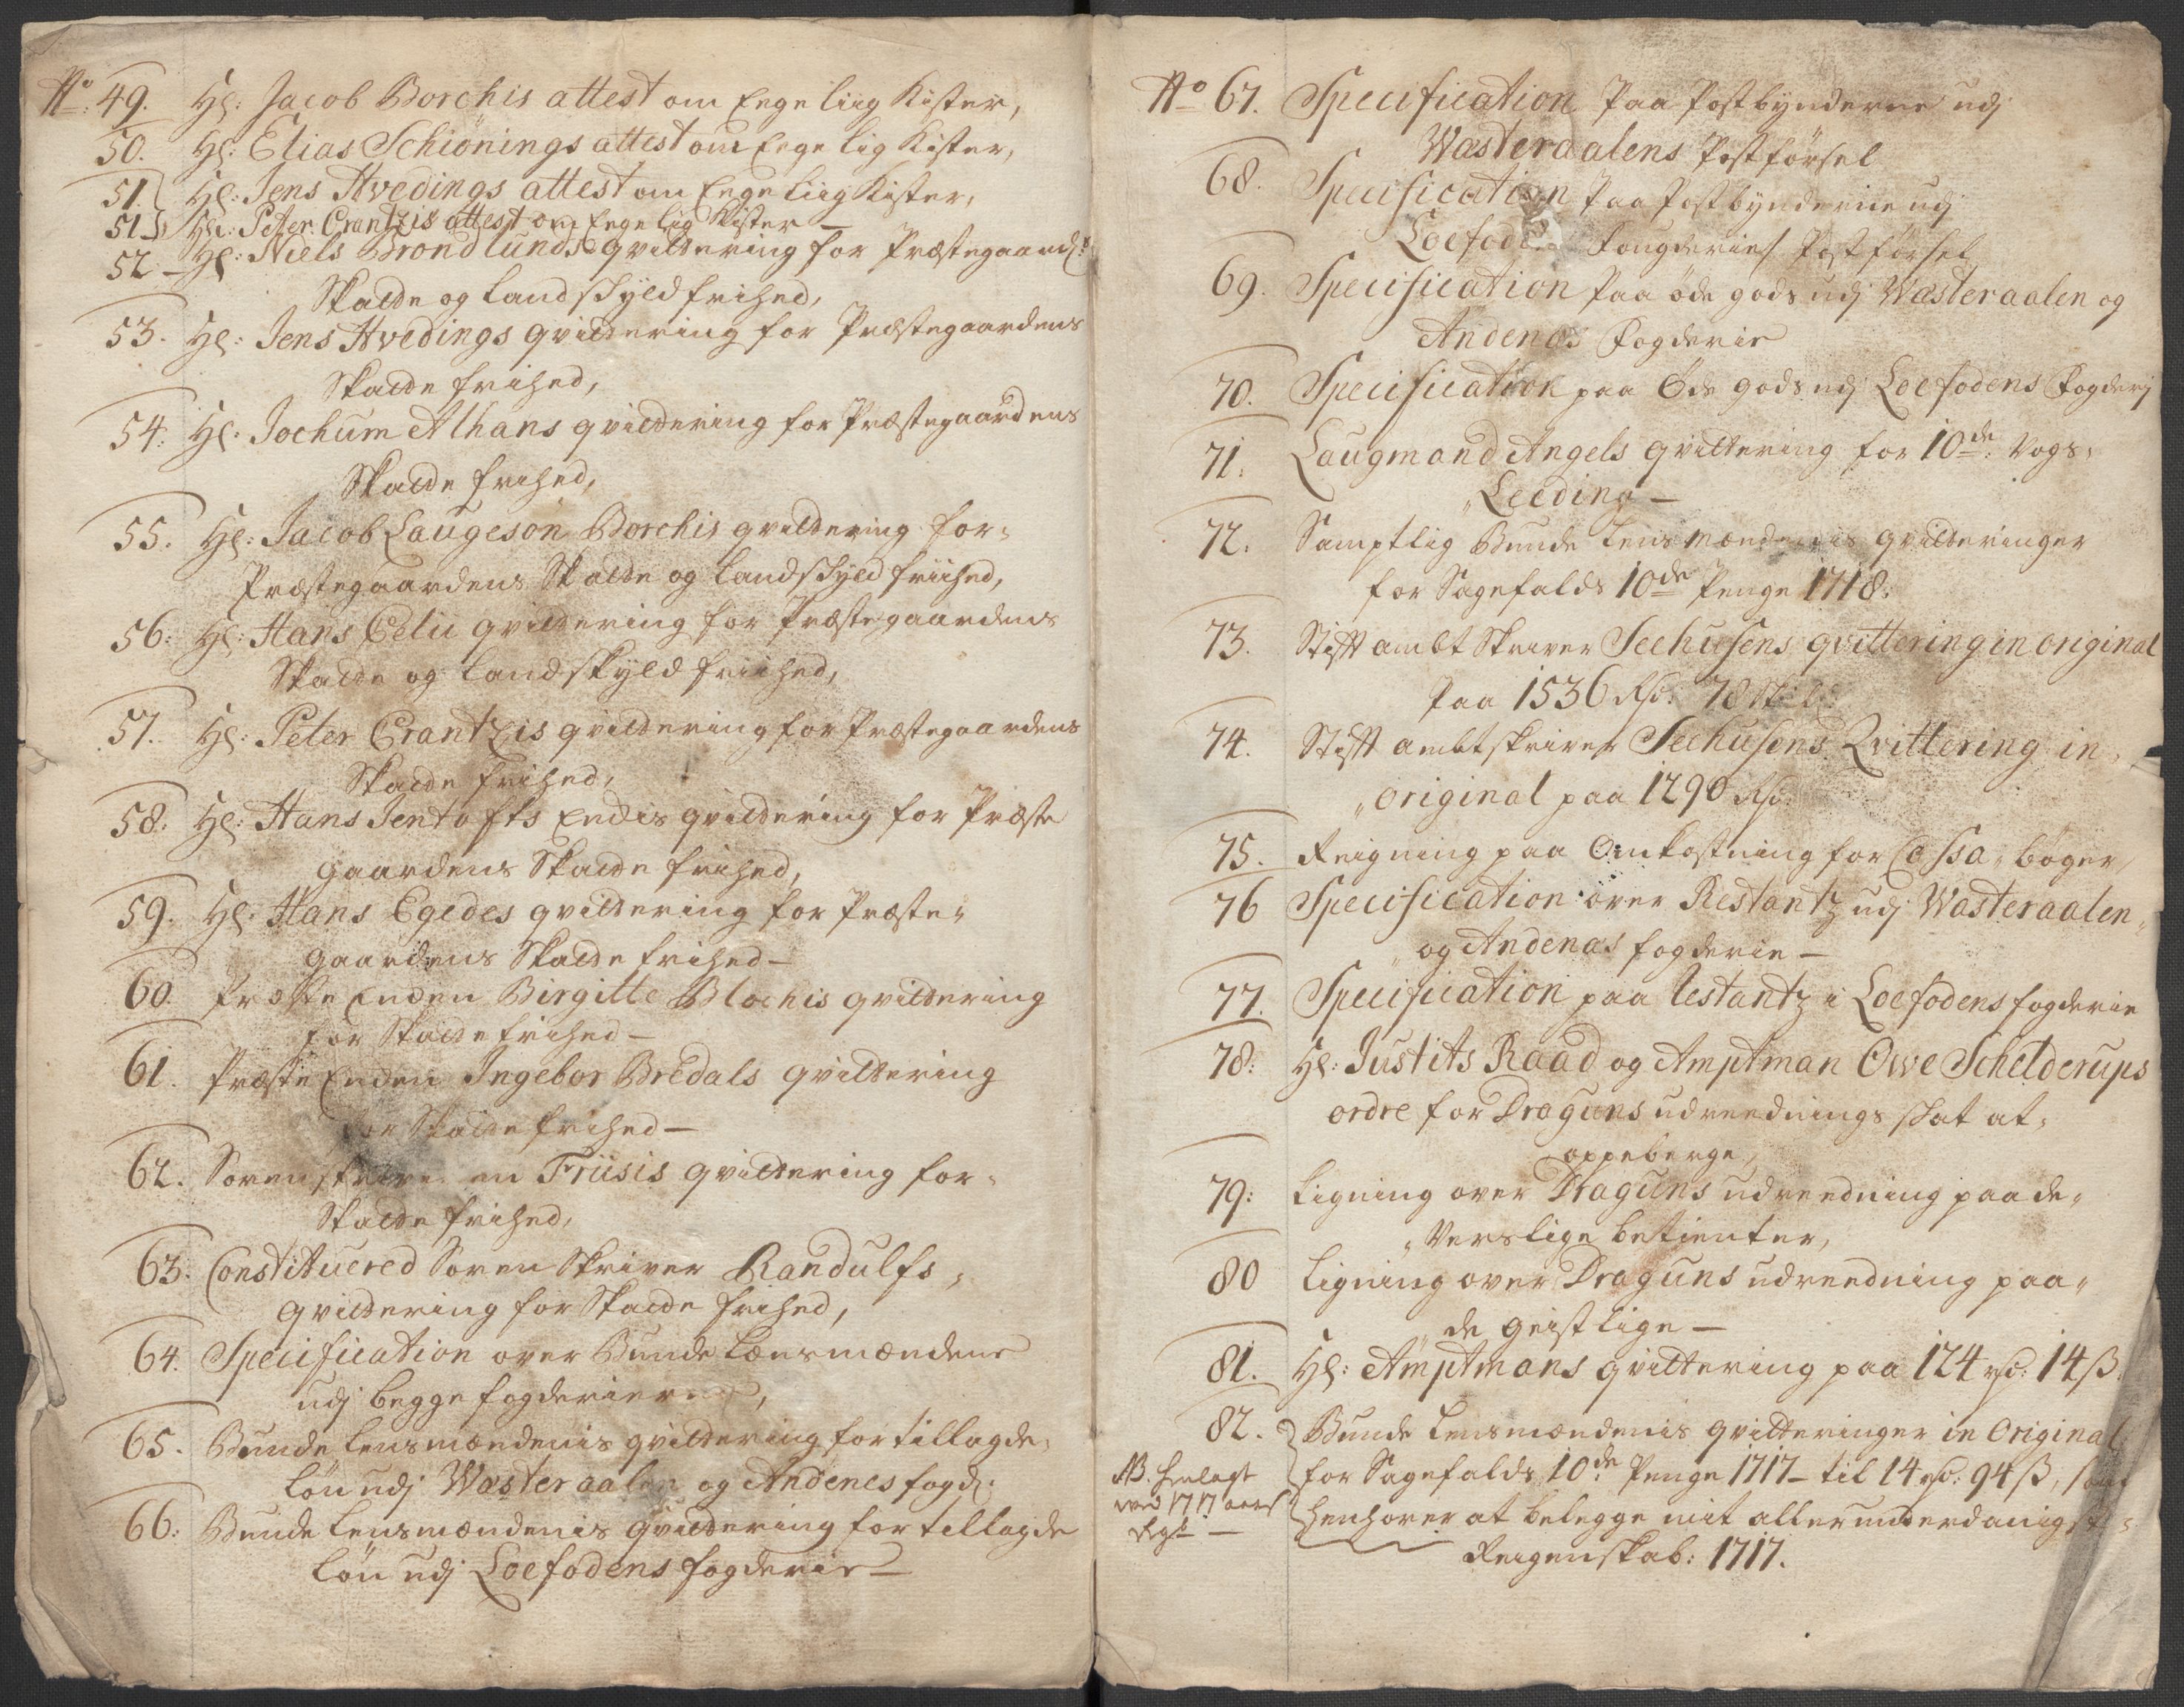 No: 49. Hr: Jacob Borchis attest om Eege liig Kister,
50. Hr: Elias Schiönings attest om Eege lig Kister,
51. Hr: Jens Hvedings attest om Eege liig Kister,
51 ½ Hr: Peter Crantzis attest om Eege lig Kister
52 Hr: Niels Brondlunds qvittering for Præstegaard:
Skatte og Landskyld frihed,
53. Hr: Jens Hvedings qvittering for Præstegaardens
Skatte frihed,
54: Hr: Jochum Alhans qvittering for Præstegaardens
Skatte frihed,
55. Hr: Jacob Laugesøn Borchis qvittering for-
Præstegaardens Skatte og Landskyld friihed,
56: Hr: Hans Celii qvittering for Præstegaardens
Skatte og Landskyld friihed,
57. Hr: Peter Crantzis qvittering for Præstegaardens
Skatte frihed,
58: Hr: Hans Jentofts Enckis qvittering for Præste
gaardens Skatte frihed,
59. Hr: Hans Egedes qvittering for Præste-
gaardens Skatte frihed-
60. Præste Encken Birgitte Blochis qvittering
for Skatte frihed-
61. Præste Encken Ingebor Bredals qvittering
for Skatte frihed-
62. Sorenskriveren Friisis qvittering for-
Skatte frihed,
63. Constitueered Soren Skriver Randulfs,
qvittering for Skatte frihed,
64. Specification over Bunde Lænsmændene
udj begge fogderierne,
65. Bunde Lensmændenis qvittering for tillagde,
Lön udj Wæsteraalen og Andenes fogd:
66: Bunde Lensmændenis qvittering for tillagde
Lön udj Loefodens fogderie-
No 67. Specification Paa Postbynderne udj
Wæsteraalens Postförsel
68. Specification Paa Postbynderne udj
Loefodens Fougderies Postförsel
69. Specification Paa öde gods udj Wæsteraalen og
Andenæs Fogderie
70. Specification paa Öde gods udj Loefodens Fogderj
71. Laugmand Angels qvittering for 10de Vogs,
Leeding-
72. Samptlig Bunde Lensmændenis qvitteringer
for Sagefalds 10de Penge 1718:
73. Stift ambt Skriver Seehusens qvittering in original
Paa 1536 Rd: 78
74. Stift ambtskriver Seehusens Qvittering in,
original paa 1290 Rd:
75. Reigning paa Omkostning for Cassa, böger
76 Specification over Restantz udj Wæsteraalen,
og Andenæs fogderie-
77. Specification paa Restantz i Loefodens fogderie
78: Hr: Justits Raad og Amptman Owe Schelderups
ordre for Draguns udreednings skat at,
oppeberge,
79: Ligning over Draguns udreedning paa de,
Verslige betienter,
80 Ligning over Draguns udreedning paa,
de geistlige-
81. Hr: Amptmans qvittering paa 124 rd: 14 ß.
82. Bunde Lensmændenis qvitteringer in Original
NB. henlagt
ved 1717 aars
Regsk:
for Sagefalds 10de Penge 1717- til 14 rd: 94 ß, som
henhörer at belegge mit allerunderdanigste
Reigenskab: 1717.